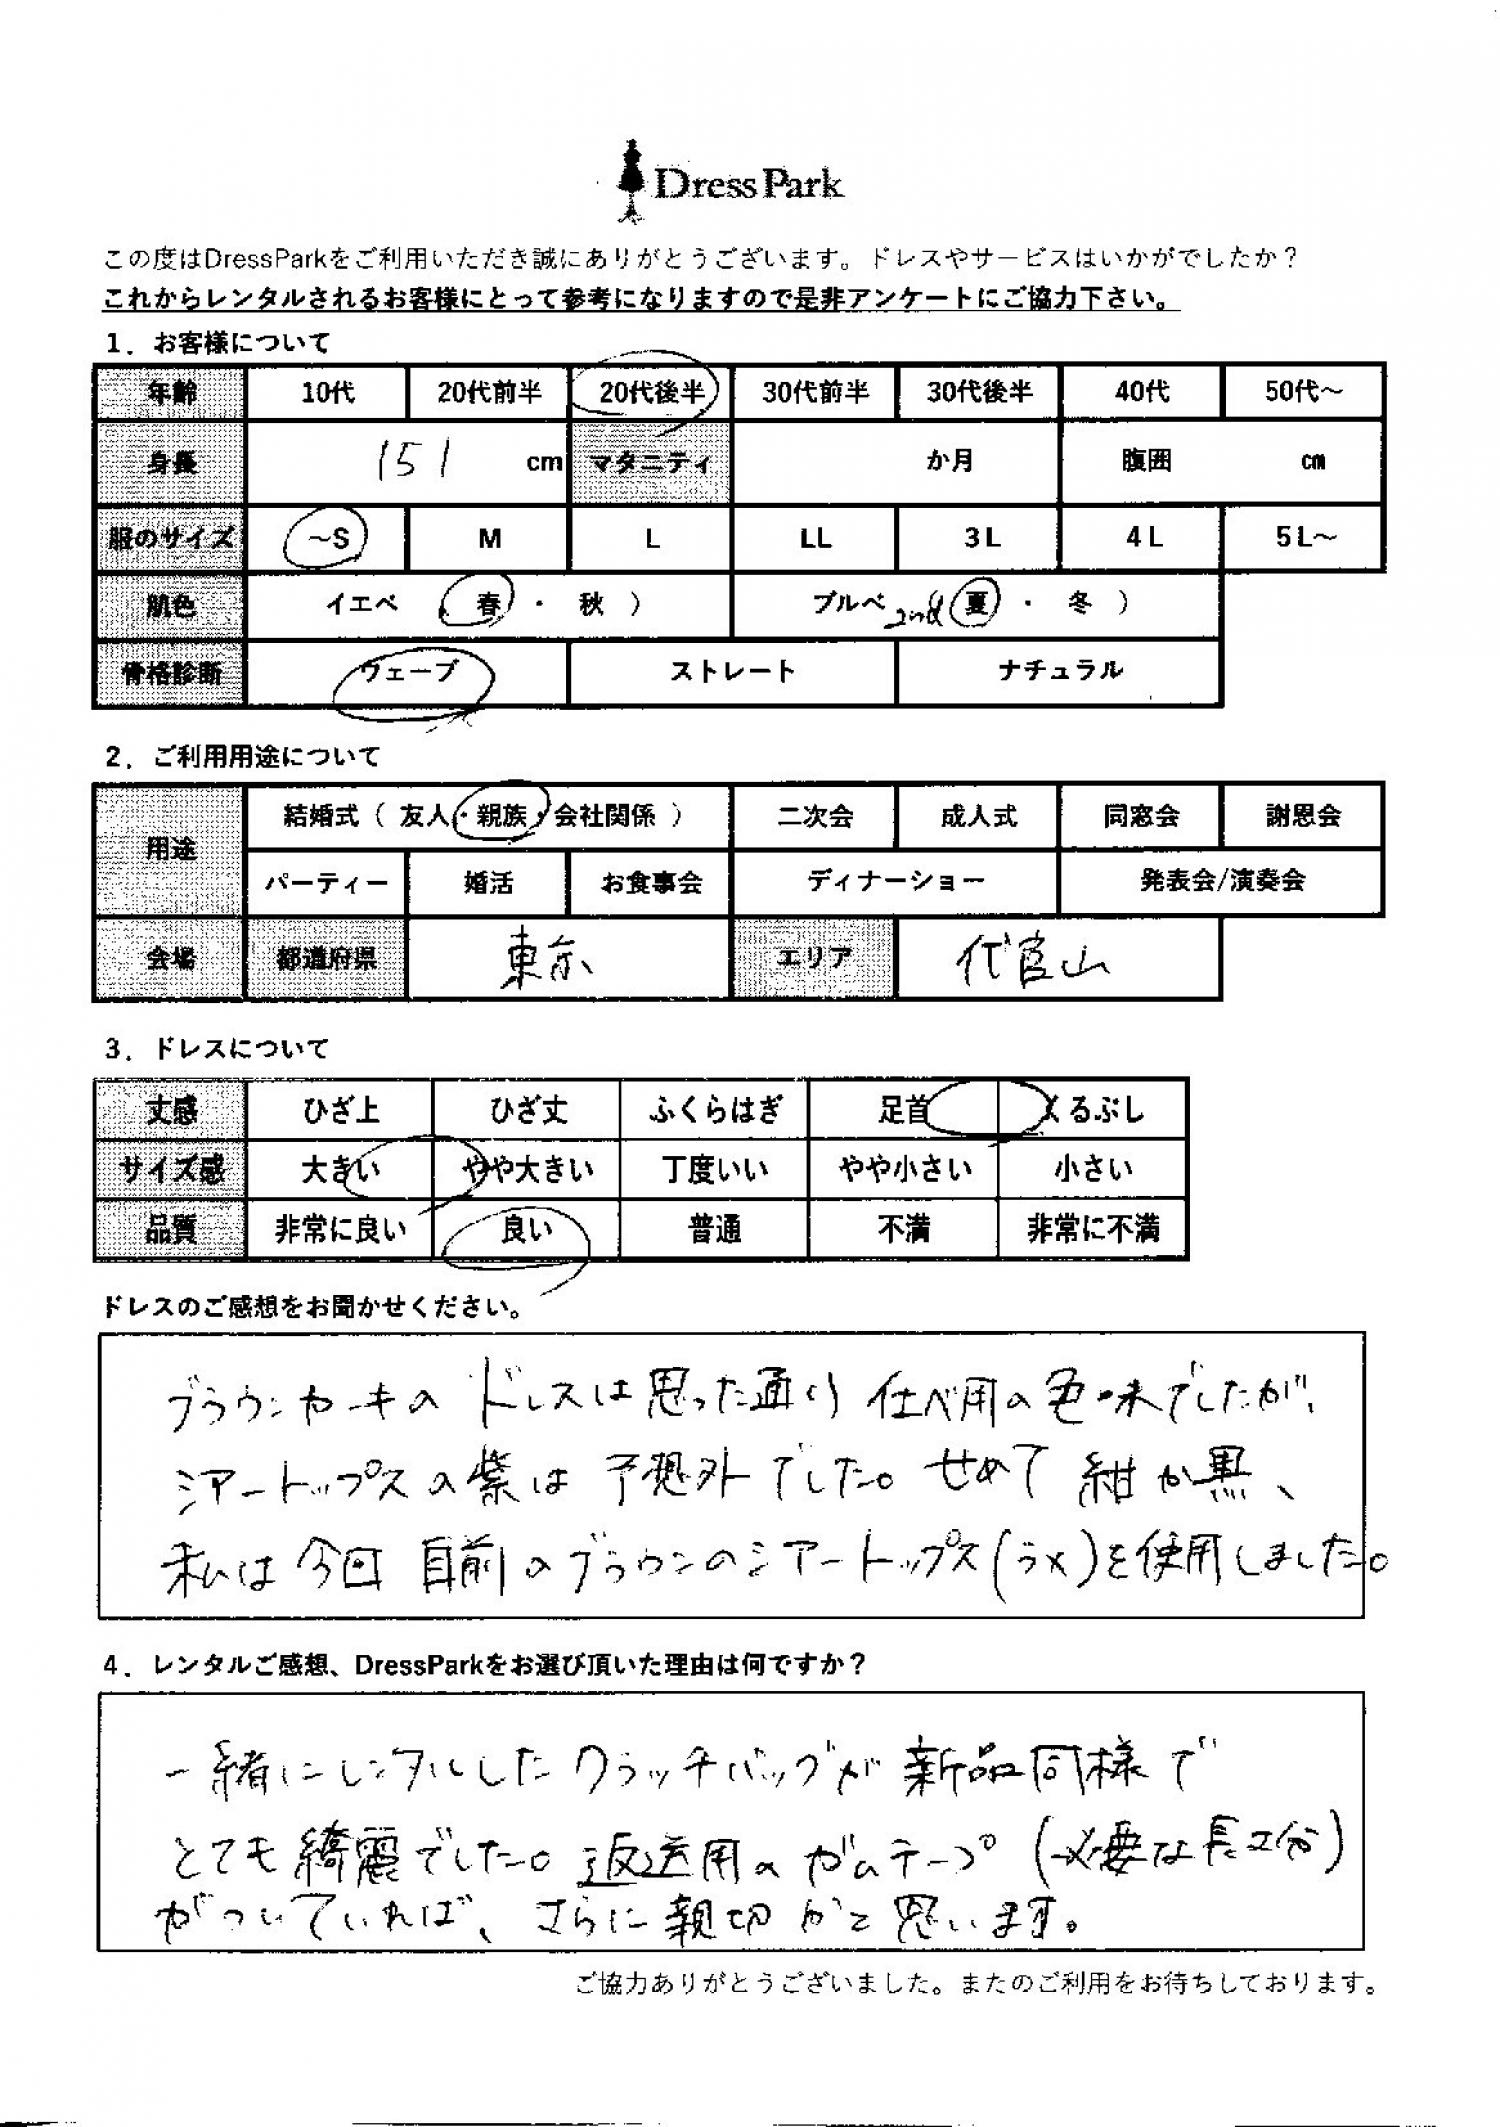 DressPark
この度はDressParkをご利用いただき誠にありがとうございます。ドレスやサービスはいかがでしたか？
これからレンタルされるお客様にとって参考になりますので是非アンケートにご協力下さい。
1．お客様について
年齢 10代 20代前半 20代後半 30代前半 30代後半 40代 50代～
身長 151 cm マタニティ か月 腹囲 cm
服のサイズ ～S M L LL 3L 4L 5L～
肌色 イエベ （ 春 ・ 秋 ） ブルベ 2nd（ 夏 ・ 冬 ）
骨格診断 ウェーブ ストレート ナチュラル
2．ご利用用途について
用途 結婚式（ 友人・親族・会社関係 ） 二次会 成人式 同窓会 謝恩会
パーティー 婚活 お食事会 ディナーショー 発表会/演奏会
会場 都道府県 東京 エリア 代官山
3．ドレスについて
丈感 ひざ上 ひざ丈 ふくらはぎ 足首 くるぶし
サイズ感 大きい やや大きい 丁度いい やや小さい 小さい
品質 非常に良い 良い 普通 不満 非常に不満
ドレスのご感想をお聞かせください。
ブラウンカーキの ドレスは思った通り の色味でしたが、
シアートップスの紫は 予想外でした。せめて 紺か黒、
私は今回 自前のブラウンのシアートップス(ラメ)を使用しました。
4．レンタルご感想、DressParkをお選び頂いた理由は何ですか？
一緒にレンタルしたクラッチバッグが 新品同様で
とても綺麗でした。返送用のガムテープ (必要な長さ分)
がついていれば、さらに親切かと思います。
ご協力ありがとうございました。またのご利用をお待ちしております。